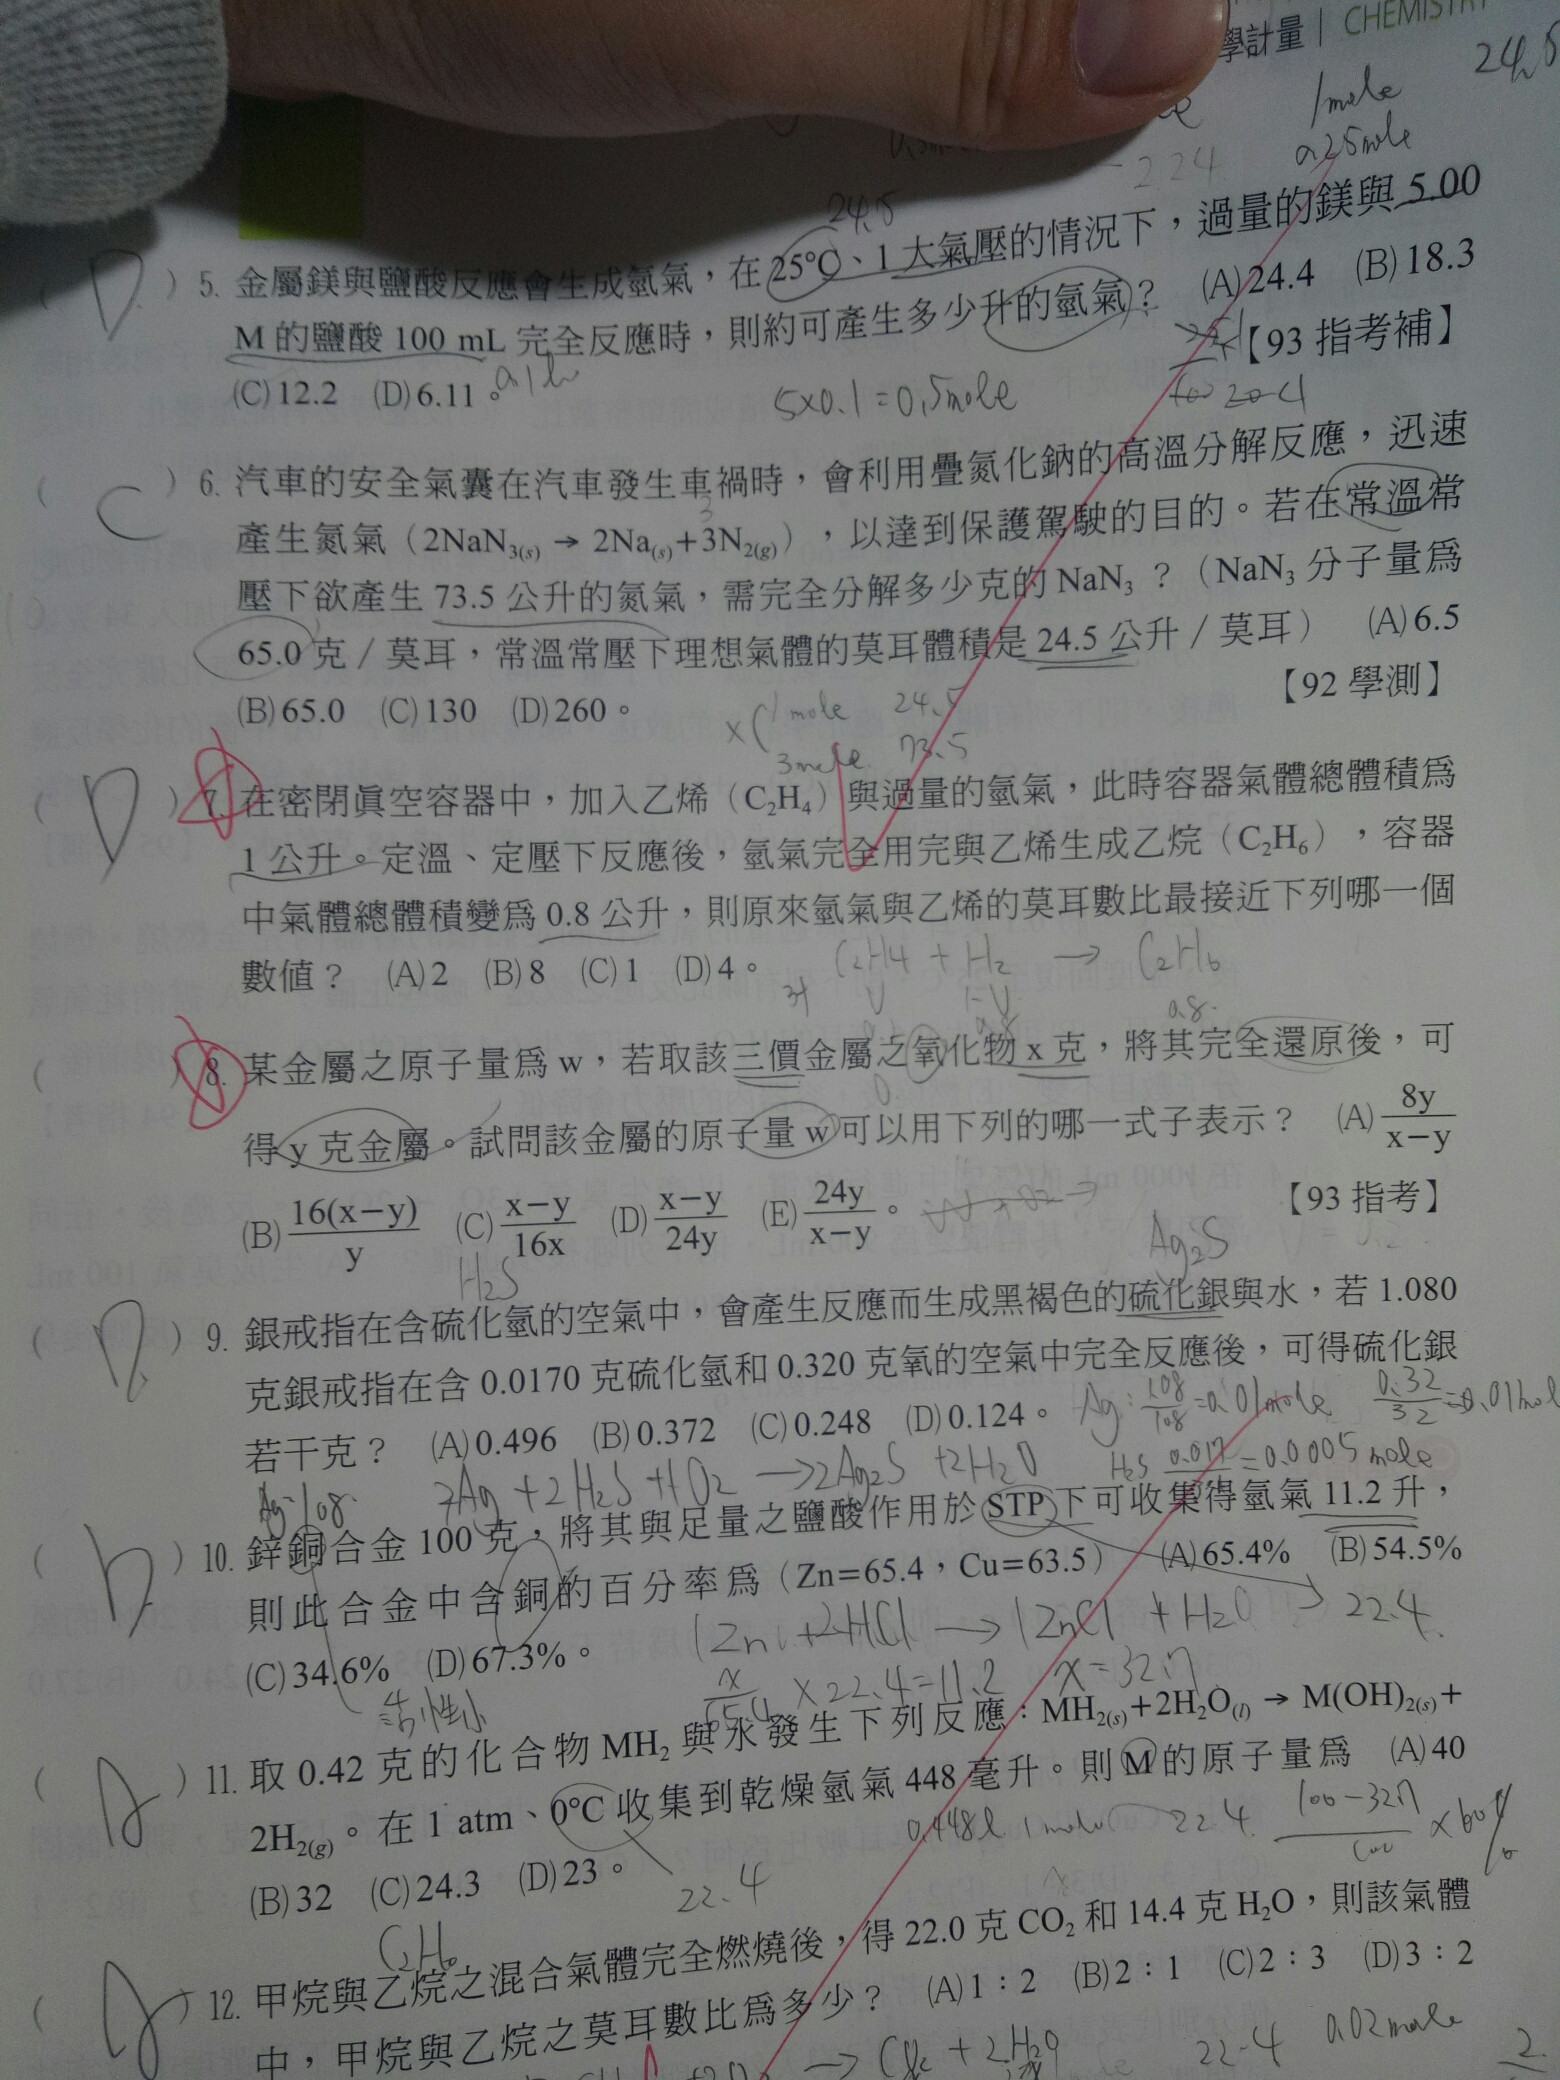 學計量｜CHEMISTRY
24.5
1 mole
0.25 mole
2.24
24.5
( D ) 5. 金屬鎂與鹽酸反應會生成氫氣，在 25°C、1 大氣壓的情況下，過量的鎂與 5.00
M 的鹽酸 100 mL 完全反應時，則約可產生多少升的氫氣？ (A)24.4 (B)18.3
(C)12.2 (D)6.11。 【93 指考補】
5×0.1=0.5mole
( C ) 6. 汽車的安全氣囊在汽車發生車禍時，會利用疊氮化鈉的高溫分解反應，迅速
產生氮氣（2NaN3(s) → 2Na(s)+3N2(g)），以達到保護駕駛的目的。若在常溫常
壓下欲產生 73.5 公升的氮氣，需完全分解多少克的 NaN3？（NaN3 分子量爲
65.0 克／莫耳，常溫常壓下理想氣體的莫耳體積是 24.5 公升／莫耳） (A)6.5
(B)65.0 (C)130 (D)260。 【92 學測】
1 mole 24.5
3 mole 73.5
( D ) 7. 在密閉眞空容器中，加入乙烯（C2H4）與過量的氫氣，此時容器氣體總體積爲
1 公升。定溫、定壓下反應後，氫氣完全用完與乙烯生成乙烷（C2H6），容器
中氣體總體積變爲 0.8 公升，則原來氫氣與乙烯的莫耳數比最接近下列哪一個
數值？ (A)2 (B)8 (C)1 (D)4。
C2H4 + H2 → C2H6
V 1-V 0.8
( ) 8. 某金屬之原子量爲 w，若取該三價金屬之氧化物 x 克，將其完全還原後，可
得 y 克金屬。試問該金屬的原子量 w 可以用下列的哪一式子表示？ (A) 8y/(x−y)
(B) 16(x−y)/y (C) (x−y)/16x (D) (x−y)/24y (E) 24y/(x−y)。 【93 指考】
H2S Ag2S
( D ) 9. 銀戒指在含硫化氫的空氣中，會產生反應而生成黑褐色的硫化銀與水，若 1.080
克銀戒指在含 0.0170 克硫化氫和 0.320 克氧的空氣中完全反應後，可得硫化銀
若干克？ (A)0.496 (B)0.372 (C)0.248 (D)0.124。
Ag: 1.08/108=0.01mole 0.32/32=0.01mol
H2S 0.017 =0.0005 mole
Ag=108
+2H2S+1O2→2Ag2S+2H2O
( b ) 10. 鋅銅合金 100 克，將其與足量之鹽酸作用於 STP 下可收集得氫氣 11.2 升，
則此合金中含銅的百分率爲（Zn=65.4，Cu=63.5） (A)65.4% (B)54.5%
(C)34.6% (D)67.3%。
1Zn+2HCl→1ZnCl+H2 22.4
x/65.4 ×22.4=11.2 x=32.7
活性小
( A ) 11. 取 0.42 克的化合物 MH2 與水發生下列反應：MH2(s)+2H2O(l) → M(OH)2(s)+
2H2(g)。在 1 atm、0°C 收集到乾燥氫氣 448 毫升。則 M 的原子量爲 (A)40
(B)32 (C)24.3 (D)23。
0.448l 1mole 22.4
(100−32.7)/100 ×100%
22.4
C2H6
( A ) 12. 甲烷與乙烷之混合氣體完全燃燒後，得 22.0 克 CO2 和 14.4 克 H2O，則該氣體
中，甲烷與乙烷之莫耳數比爲多少？ (A)1：2 (B)2：1 (C)2：3 (D)3：2
22.4 0.02mole